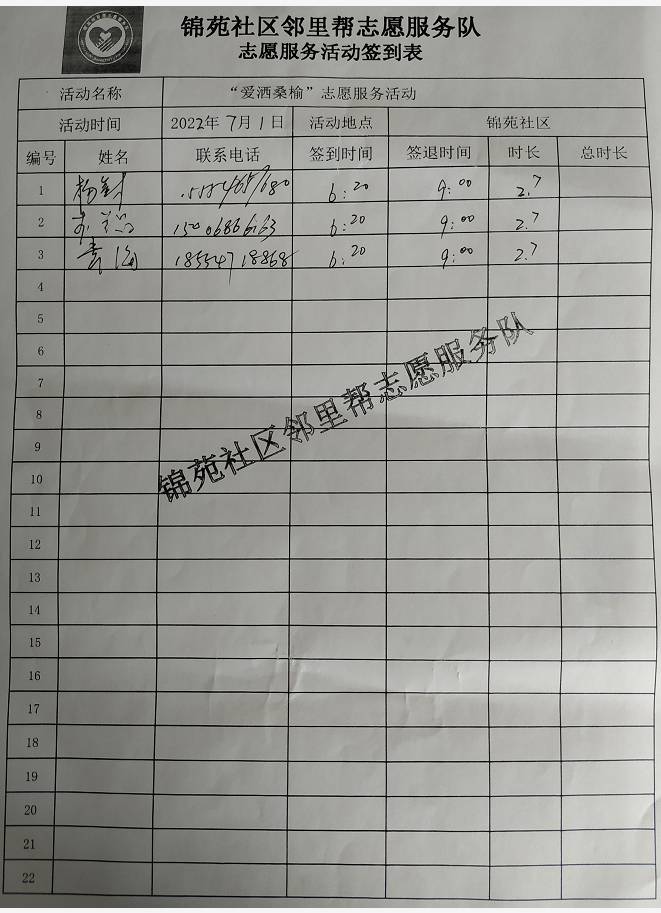 锦苑社区邻里帮志愿服务队
志愿服务活动签到表
活动名称 “爱洒桑榆”志愿服务活动
活动时间 2022年7月1日 活动地点 锦苑社区
编号 姓名 联系电话 签到时间 签退时间 时长 总时长
1 6:20 9:00 2.7
2 15006866163 6:20 9:00 2.7
3 18554718868 6:20 9:00 2.7
4
5
6
7
8
9
10
11
12
13
14
15
16
17
18
19
20
21
22
锦苑社区邻里帮志愿服务队